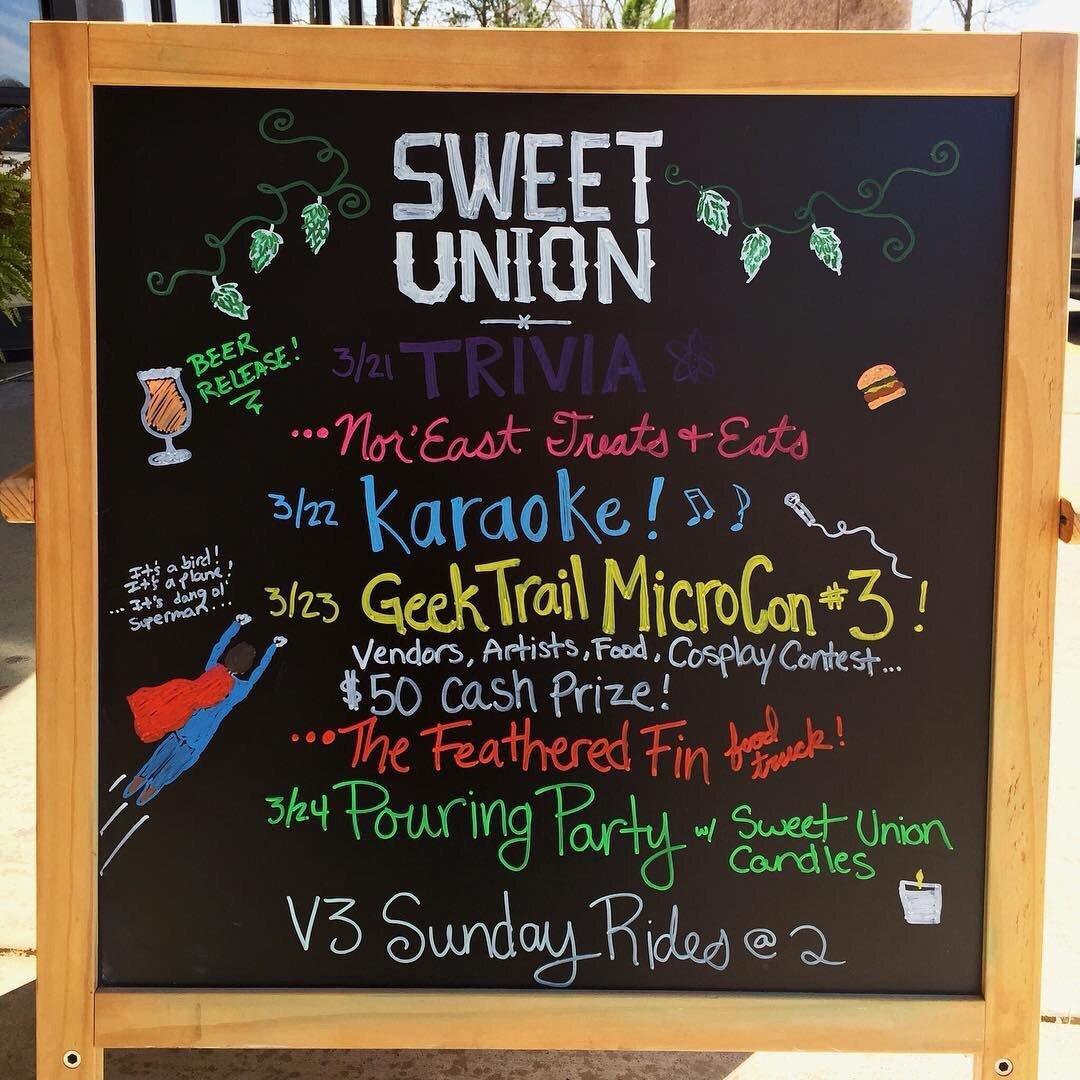 SWEET
UNION
BEER
RELEASE!
3/21 TRIVIA
...Nor'East Treats + Eats
3/22 Karaoke!
It's a bird!
It's a plane!
... It's dang ol'
Superman...
3/23 GeekTrail MicroCon #3!
Vendors, Artists, Food, Cosplay Contest...
$50 Cash Prize!
...The Feathered Fin food truck!
3/24 Pouring Party w/ Sweet Union
Candles
V3 Sunday Rides @ 2